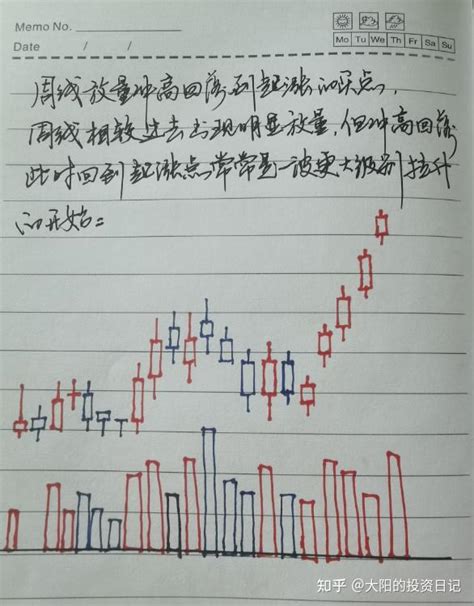 Memo No.
Date / /
Mo Tu We Th Fr Sa Su
周线放量冲高回落到起涨的买点,
周线相较过去出现明显放量,但冲高回落
此时回到起涨点常常是一波更大级别拉升
的开始:
知乎 @大阳的投资日记